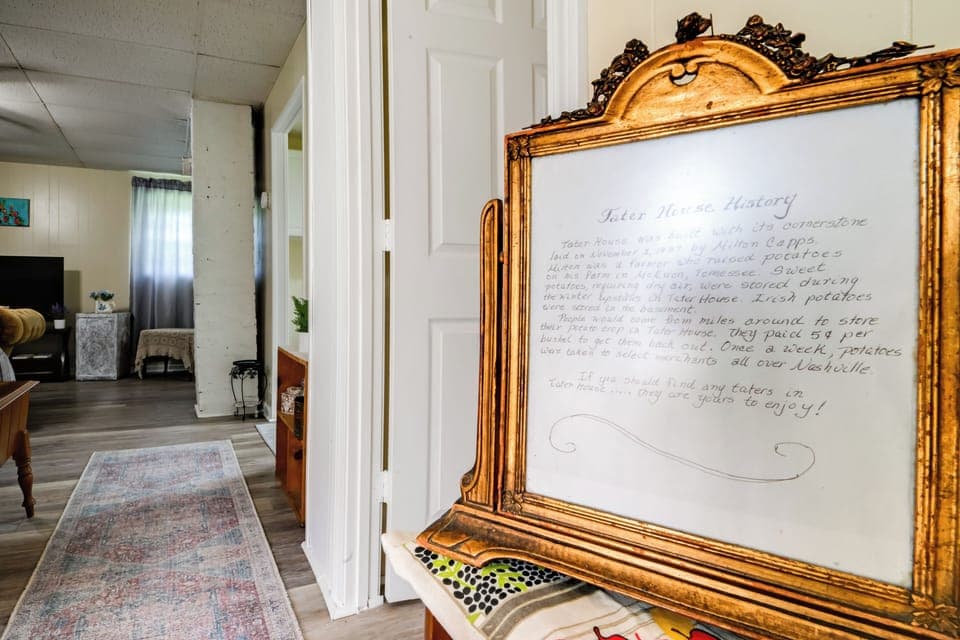 Tater House History
Tater House was built with its cornerstone
laid on November 2, by Milton Capps.
Milton was a farmer who raised potatoes
on his farm in McEwen, Tennessee. Sweet
potatoes, requiring dry air, were stored during
the winter upstairs in Tater House. Irish potatoes
were stored in the basement.
People would come from miles around to store
their potato crop in Tater House. They paid 5¢ per
bushel to get them back out. Once a week, potatoes
was taken to select merchants all over Nashville.
If you should find any taters in
Tater House.... they are yours to enjoy!